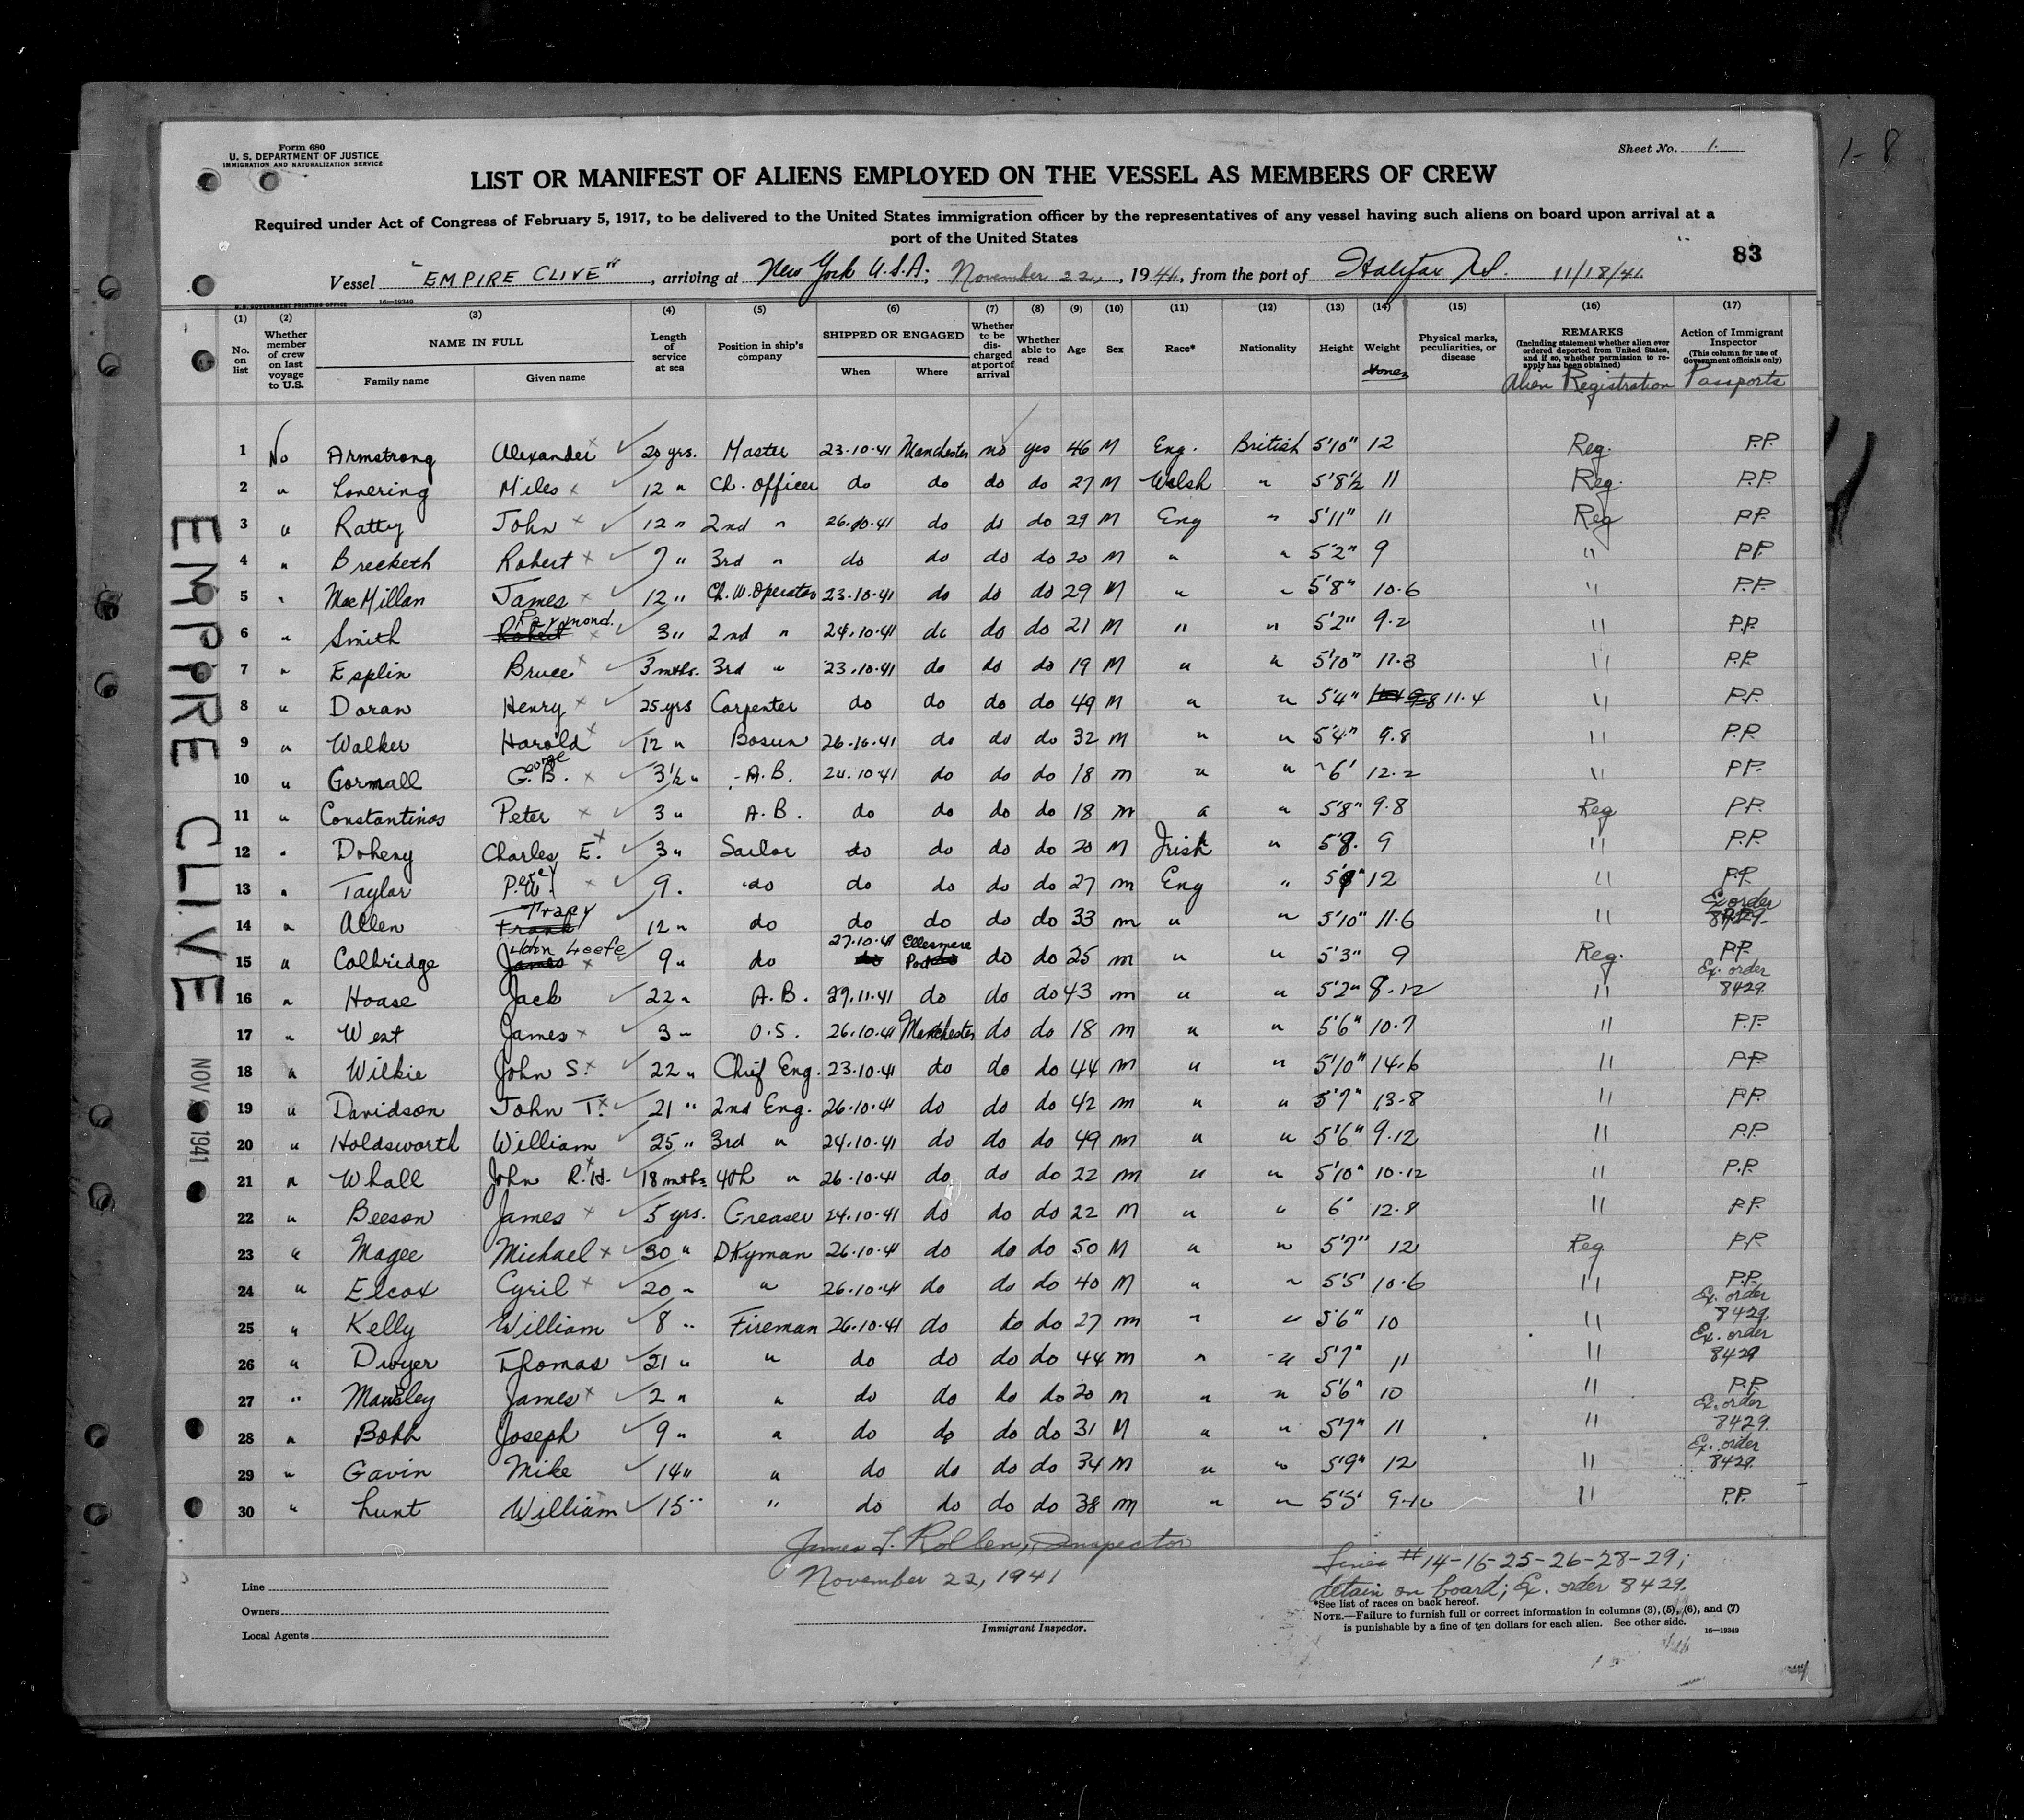 Form 680
U. S. DEPARTMENT OF JUSTICE
IMMIGRATION AND NATURALIZATION SERVICE
Sheet No. 1.
1-8
LIST OR MANIFEST OF ALIENS EMPLOYED ON THE VESSEL AS MEMBERS OF CREW
Required under Act of Congress of February 5, 1917, to be delivered to the United States immigration officer by the representatives of any vessel having such aliens on board upon arrival at a
port of the United States
83
Vessel "EMPIRE CLIVE", arriving at New York U.S.A; November 22, 1941, from the port of Halifax N.S. 11/18/41.
U. S. GOVERNMENT PRINTING OFFICE 16—19349
(1) (2) (3) (4) (5) (6) (7) (8) (9) (10) (11) (12) (13) (14) (15) (16) (17)
No. on list
Whether member of crew on last voyage to U.S.
NAME IN FULL
Family name Given name
Length of service at sea
Position in ship's company
SHIPPED OR ENGAGED
When Where
Whether to be discharged at port of arrival
Whether able to read
Age
Sex
Race*
Nationality
Height
Weight
Physical marks, peculiarities, or disease
REMARKS
(Including statement whether alien ever ordered deported from United States, and if so, whether permission to reapply has been obtained)
Alien Registration
Action of Immigrant Inspector
(This column for use of Government officials only)
Passports
1 No Armstrong Alexander 20 yrs. Master 23.10.41 Manchester no yes 46 M Eng. British 5'10" 12 Reg. P.P.
2 " Lovering Miles 12 " Ch. Officer do do do do 27 M Welsh " 5'8½ 11 Reg. P.P.
3 " Ratty John 12 " 2nd " 26.10.41 do do do 29 M Eng " 5'11" 11 Reg P.P.
4 " Brecketh Robert 7 " 3rd " do do do do 20 M " " 5'2" 9 " P.P.
5 " MacMillan James 12 " Ch. W. Operator 23.10.41 do do do 29 M " " 5'8" 10.6 " P.P.
6 " Smith Robert Raymond. 3 " 2nd " 24.10.41 do do do 21 M " " 5'2" 9.2 " P.P.
7 " Esplin Bruce 3 mths. 3rd " 23.10.41 do do do 19 M " " 5'10" 11.3 " P.P.
8 " Doran Henry 25 yrs Carpenter do do do do 49 M " " 5'4" 11.4 " P.P.
9 " Walker Harold 12 " Bosun 26.10.41 do do do 32 M " " 5'4" 9.8 " P.P.
10 " Gormall George B. 3½ " A.B. 24.10.41 do do do 18 m " " 6' 12.2 " P.P.
11 " Constantinos Peter 3 " A.B. do do do do 18 m " " 5'8" 9.8 Reg P.P.
12 " Doheny Charles E. 3 " Sailor do do do do 20 M Irish " 5'8. 9 " P.P.
13 " Taylor P.W. 9 " do do do do do 27 m Eng " 12 " P.P.
14 " Allen Frank Tracy 12 " do do do do do 33 m " " 5'10" 11.6 " Ex order 8429.
15 " Colbridge James John 9 " do 27.10.41 Ellesmere Port do do 25 m " " 5'3" 9 Reg. P.P.
16 " Hoase Jack 22 " A.B. 29.11.41 do do do 43 m " " 5'2" 8.12 " Ex. order 8429.
17 " West James 3 " O.S. 26.10.41 Manchester do do 18 m " " 5'6" 10.7 " P.P.
18 " Wilkie John S. 22 " Chief Eng. 23.10.41 do do do 44 m " " 5'10" 14.6 " P.P.
19 " Davidson John T. 21 " 2nd Eng. 26.10.41 do do do 42 m " " 5'7" 13-8 " P.P.
20 " Holdsworth William 25 " 3rd " 24.10.41 do do do 49 m " " 5'6" 9.12 " P.P.
21 " Whall John R.H. 18 mths 4th " 26.10.41 do do do 22 m " " 5'10" 10.12 " P.P.
22 " Beeson James 5 yrs. Greaser 24.10.41 do do do 22 M " " 6' 12.8 " P.P.
23 " Magee Michael 30 " Dkyman 26.10.41 do do do 50 M " " 5'7" 12 Reg P.P.
24 " Elcox Cyril 20 " " 26.10.41 do do do 40 M " " 5'5' 10.6 " P.P.
25 " Kelly William 8 " Fireman 26.10.41 do do do 27 m " " 5'6" 10 " Ex. order 8429.
26 " Dwyer Thomas 21 " " do do do do 44 m " " 5'7" 11 " Ex. order 8429
27 " Mawsley James 2 " " do do do do 20 m " " 5'6" 10 " P.P.
28 " Bohh Joseph 9 " " do do do do 31 M " " 5'7" 11 " Ex. order 8429.
29 " Gavin Mike 14 " " do do do do 34 M " " 5'9" 12 " Ex. order 8429.
30 " Lunt William 15 " " do do do do 38 m " " 5'5' 9-10 " P.P.
EMPIRE CLIVE
NOV 1941
James L. Rollen, Inspector
November 22, 1941
Immigrant Inspector.
Line
Owners
Local Agents
Lines #14-16-25-26-28-29;
detain on board; Ex. order 8429.
*See list of races on back hereof.
NOTE.—Failure to furnish full or correct information in columns (3), (5), (6), and (7)
is punishable by a fine of ten dollars for each alien. See other side. 16—19349